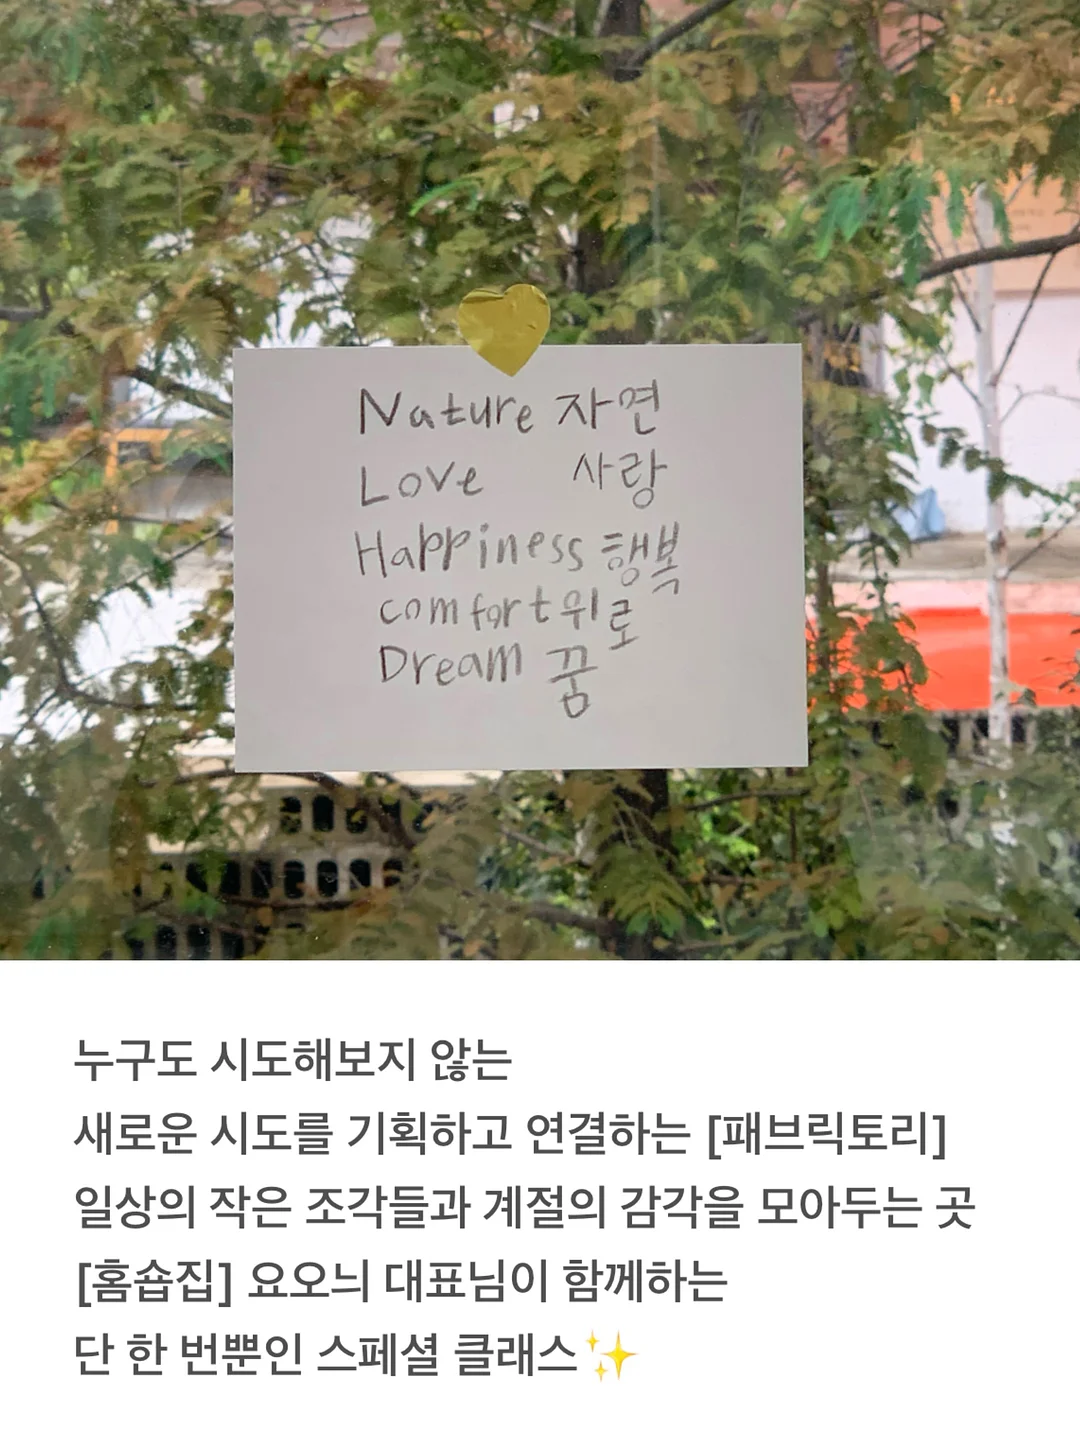 Nature 자연
Love 사랑
Happiness 행복
comfort 위로
Dream 꿈
누구도 시도해보지 않는
새로운 시도를 기획하고 연결하는 [패브릭토리]
일상의 작은 조각들과 계절의 감각을 모아두는 곳
[홈숍집] 요오늬 대표님이 함께하는
단 한 번뿐인 스페셜 클래스✨